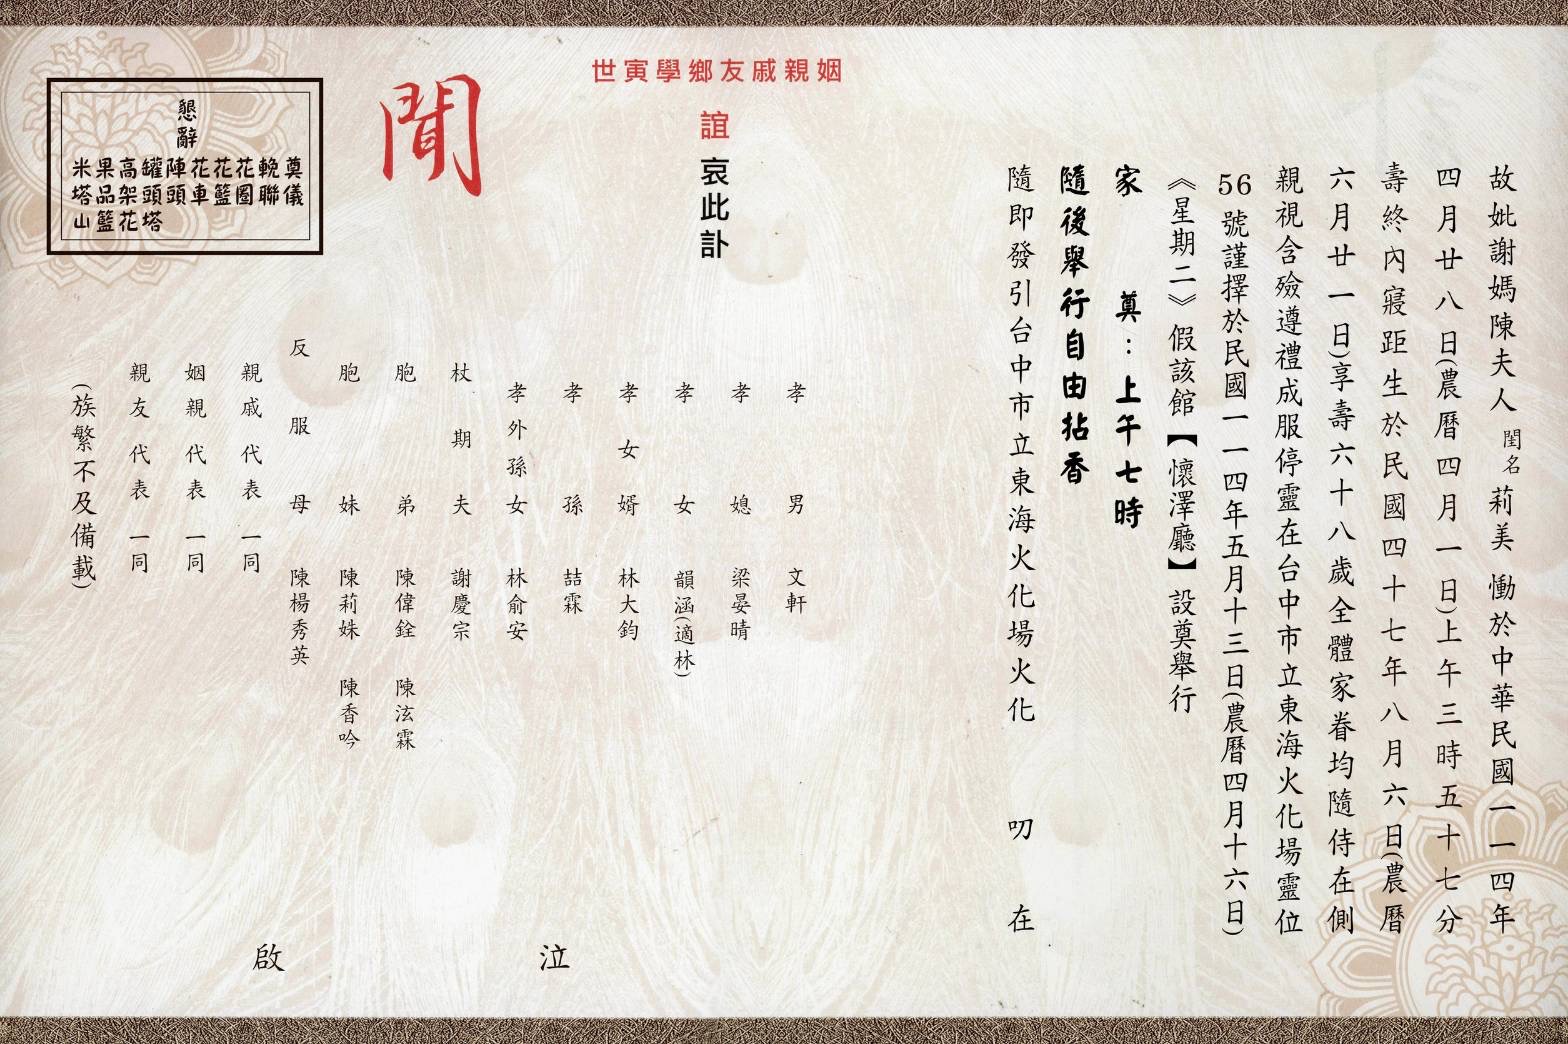 故妣謝媽陳夫人閨名莉美 慟於中華民國一一四年
四月廿八日(農曆四月一日)上午三時五十七分
壽終內寢距生於民國四十七年八月六日(農曆
六月廿一日)享壽六十八歲全體家眷均隨侍在側
親視含殮遵禮成服停靈在台中市立東海火化場靈位
56號謹擇於民國一一四年五月十三日(農曆四月十六日)
《星期二》假該館【懷澤廳】設奠舉行
家 奠:上午七時
隨後舉行自由拈香
隨即發引台中市立東海火化場火化 叨在
姻親戚友鄉學寅世
誼哀此訃
聞
孝男 文軒
孝媳 梁晏晴
孝女 韻涵(適林)
孝女婿 林大鈞
孝孫 喆霖
孝外孫女 林俞安
杖期夫 謝慶宗
胞弟 陳偉銓 陳泫霖
胞妹 陳莉姝 陳香吟
反服母 陳楊秀英
親戚代表一同
姻親代表一同
親友代表一同
(族繁不及備載)
泣
啟
懇辭
奠儀
輓聯
花圈
花籃
花車
陣頭
罐頭塔
高架花
果品籃
米塔山